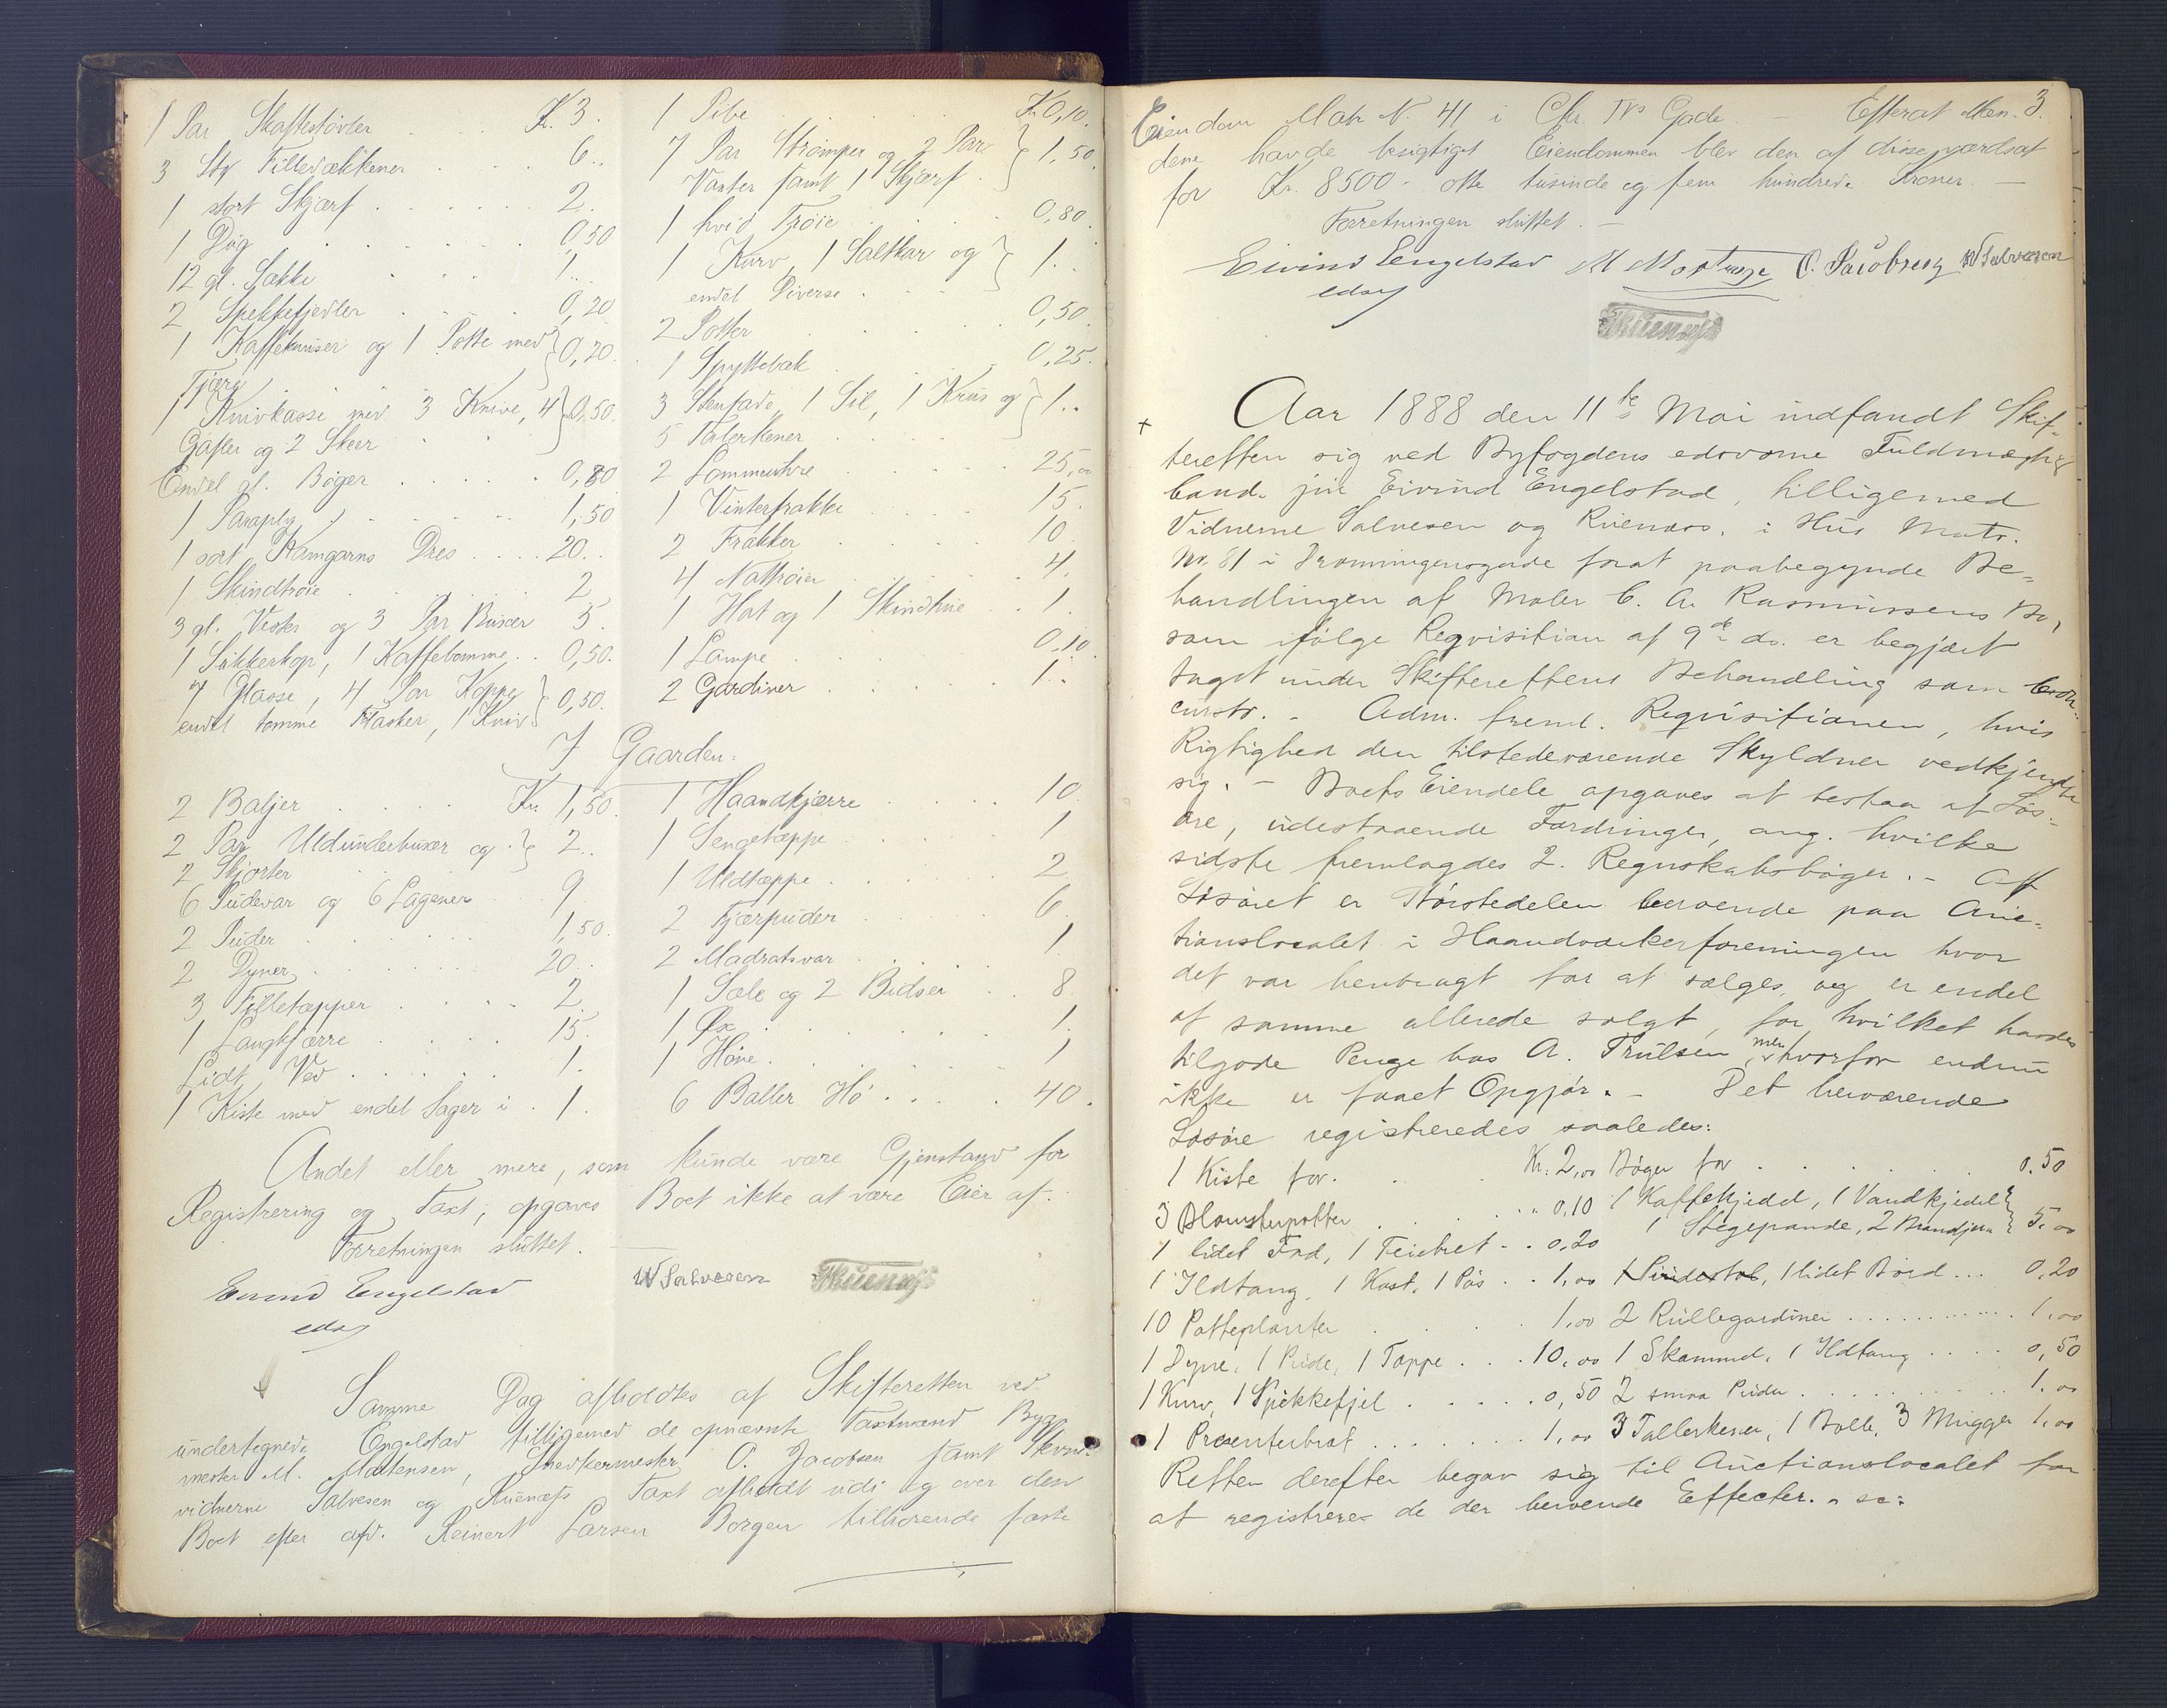 1 Par Skaftestøvler . . . Kr. 3.
3 Stk Filletækkener . . 6..
1 stort Skjærf . . . . . 2.
1 Dug . . . . . . 0,50
12 gl. Sække . . . 1..
2 Spekkefjedler . . . . 0,20
1 Kaffekruser og 1 Potte med } 0,20.
Tjære
1 Knivkasse med 3 Knive, 4 } 0,50.
Gafler og 2 Skeer
Endel gl. Bøger . . . . . 0,80
1 Paraply . . . . . 1,50
1 sort Kamgarns Dres . . . . 20..
1 Skindtrøie . . . . . 2
3 gl. Vester og 3 Par Buxer 5.
1 Sukkerkop, 1 Kaffebomme . . 0,50.
7 Glasse, 4 Par Koppe } 0,50.
endel tomme Flasker, 1 Kniv
1 Pibe . . . . Kr 0,10.
7 Par Strømper og 2 Par } 1,50.
Vanter samt 1 Skjærf .
1 hvid Trøie . . . . 0,80.
1 Kurv, 1 Saltkar og } 1..
endel Diverse .
2 Potter . . . . . 0,50.
1 Spyttebak . . . . 0,25.
3 Stenfade, 1 Sil, 1 Krus og } 1..
5 Talerkener . . . .
2 Lommeuhre . . . . 25,00
1 Vinterfrakke . . . . 15.
2 Frakker . . . . . 10
4 Nattrøier . . . . . 4.
1 Hat og 1 Skindhue . . 1.
1 Lampe . . . . . . 0,10.
2 Gardiner . . . . . 1..
I Gaarden.
2 Baljer . . . . Kr. 1,50.
2 Par Uldunderbuxer og } 2..
2 Skjorter
6 Pudevar og 6 Lagener . . 9.
2 Puder . . . . . . 1,50.
2 Dyner . . . . . 20..
3 Filletæpper . . . . 2.
1 Langkjærre . . . . 15.
Lidt Ved . . . . . 1.
1 Kiste med endel Sager i . 1.
1 Haandkjærre . . . . 10
1 Sengetæppe . . . . 1
1 Uldtæppe . . . . . 2
2 Fjærpuder . . . . 6
2 Madratsvar . . . . 1
1 Sæle og 2 Bidsler . . 8
1 Øx . . . . . . 1.
1 Høne . . . . . . 1
6 Baller Hø . . . . 40.
Andet eller mere, som kunde være Gjenstand for
Registrering og Taxt, opgaves Boet ikke at være Eier af.
Forretningen sluttet. —
Eivind Engelstad W Salvesen Ruenæss
edsv
Samme Dag afholdtes af Skifteretten ved
undertegnede Engelstad tilligemed de opnævnte Taxtmænd Byg-
mester M. Mortensen, Snedkermester O. Jacobsen samt Skrive-
vidnerne Salvesen og Ruenæss Taxt afholdt udi og over den
Boet efter afd. Reinert Larsen Borgen tilhørende faste
3.
Eiendom Matr N. 41 i Chr. IVs Gade — Efterat Mæn-
dene havde besigtiget Eiendommen blev den af disse værdsat
for Kr. 8500 - otte tusinde og fem hundrede Kroner. —
Forretningen sluttet. —
Eivind Engelstad M Mortensen O. Jacobsen W Salvesen
edsv
Ruenæss
+ Aar 1888 den 11te Mai indfandt Skif-
teretten sig ved Byfogdens edsvorne Fuldmægtig
cand. jur Eivind Engelstad, tilligemed
Vidnerne Salvesen og Ruenæss. i Hus Matr.
No. 81 i Dronningensgade forat paabegynde Be-
handlingen af Maler C. A. Rasmussens Bo,
som ifølge Reqvisition af 9de ds. er begjært
taget under Skifterettens Behandling som con-
curstr. - Adm. freml. Reqvisitionen, hvis
Rigtighed den tilstedeværende Skyldner vedkjendte
sig. - Boets Eiendele opgaves at bestaa af Løs-
øre, udestaaende Fordringer, ang. hvilke
sidste fremlagdes 2. Regnskabsbøger. - Af
Løsøret er Størstedelen beroende paa Auc-
tionslocalet i Haandværkerforeningen hvor
det var henbragt for at sælges, og er endel
af samme allerede solgt, for hvilket havdes
tilgode Penge hos A. Trulsen, men hvorfor endnu
ikke er faaet Opgjør. - Det herværende
Løsøre registreredes saaledes:
1 Kiste for . . . Kr. 2,00
3 Blomsterpotter . . . „ 0,10
1 lidet Fad, 1 Feiebret - . 0,20
1 Ildtang, 1 Kost, 1 Pøs . . 1,00
10 Potteplanter . . . . 1,00
1 Dyne, 1 Pude, 1 Tæppe . . . 10,00
1 Kurv, 1 Spekkefjel . . . . 0,50
1 Præsenterbret . . . . . . 1,00
Bøger for . . . . . . 0.50
1 Kaffekjedel, 1 Vandkjedel }
1 Stegepande, 2 Brandjern } 5.00
1 lidet Bord ... 0,20
2 Rullegardiner . . . . . . 1,00
1 Skammel, 1 Ildtang . . . . 0,50
2 smaa Puder . . . . . . 1.00
3 Tallerkener, 1 Bolle, 3 Mugger 1,00
Retten derefter begav sig til Auctionslocalet for
at registrere de der beroende Effecter. „ sc: